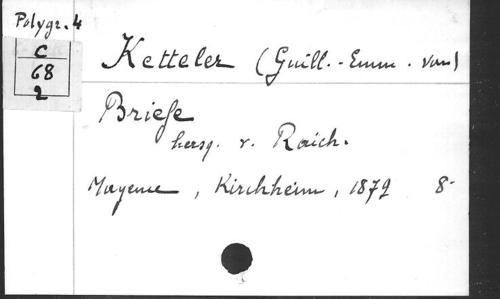 Polygr. 4
C
68
2
Ketteler (Guill.-Emm. von)
Briefe
hersg. v. Raich.
Mayence, Kirchheim, 1879 8-